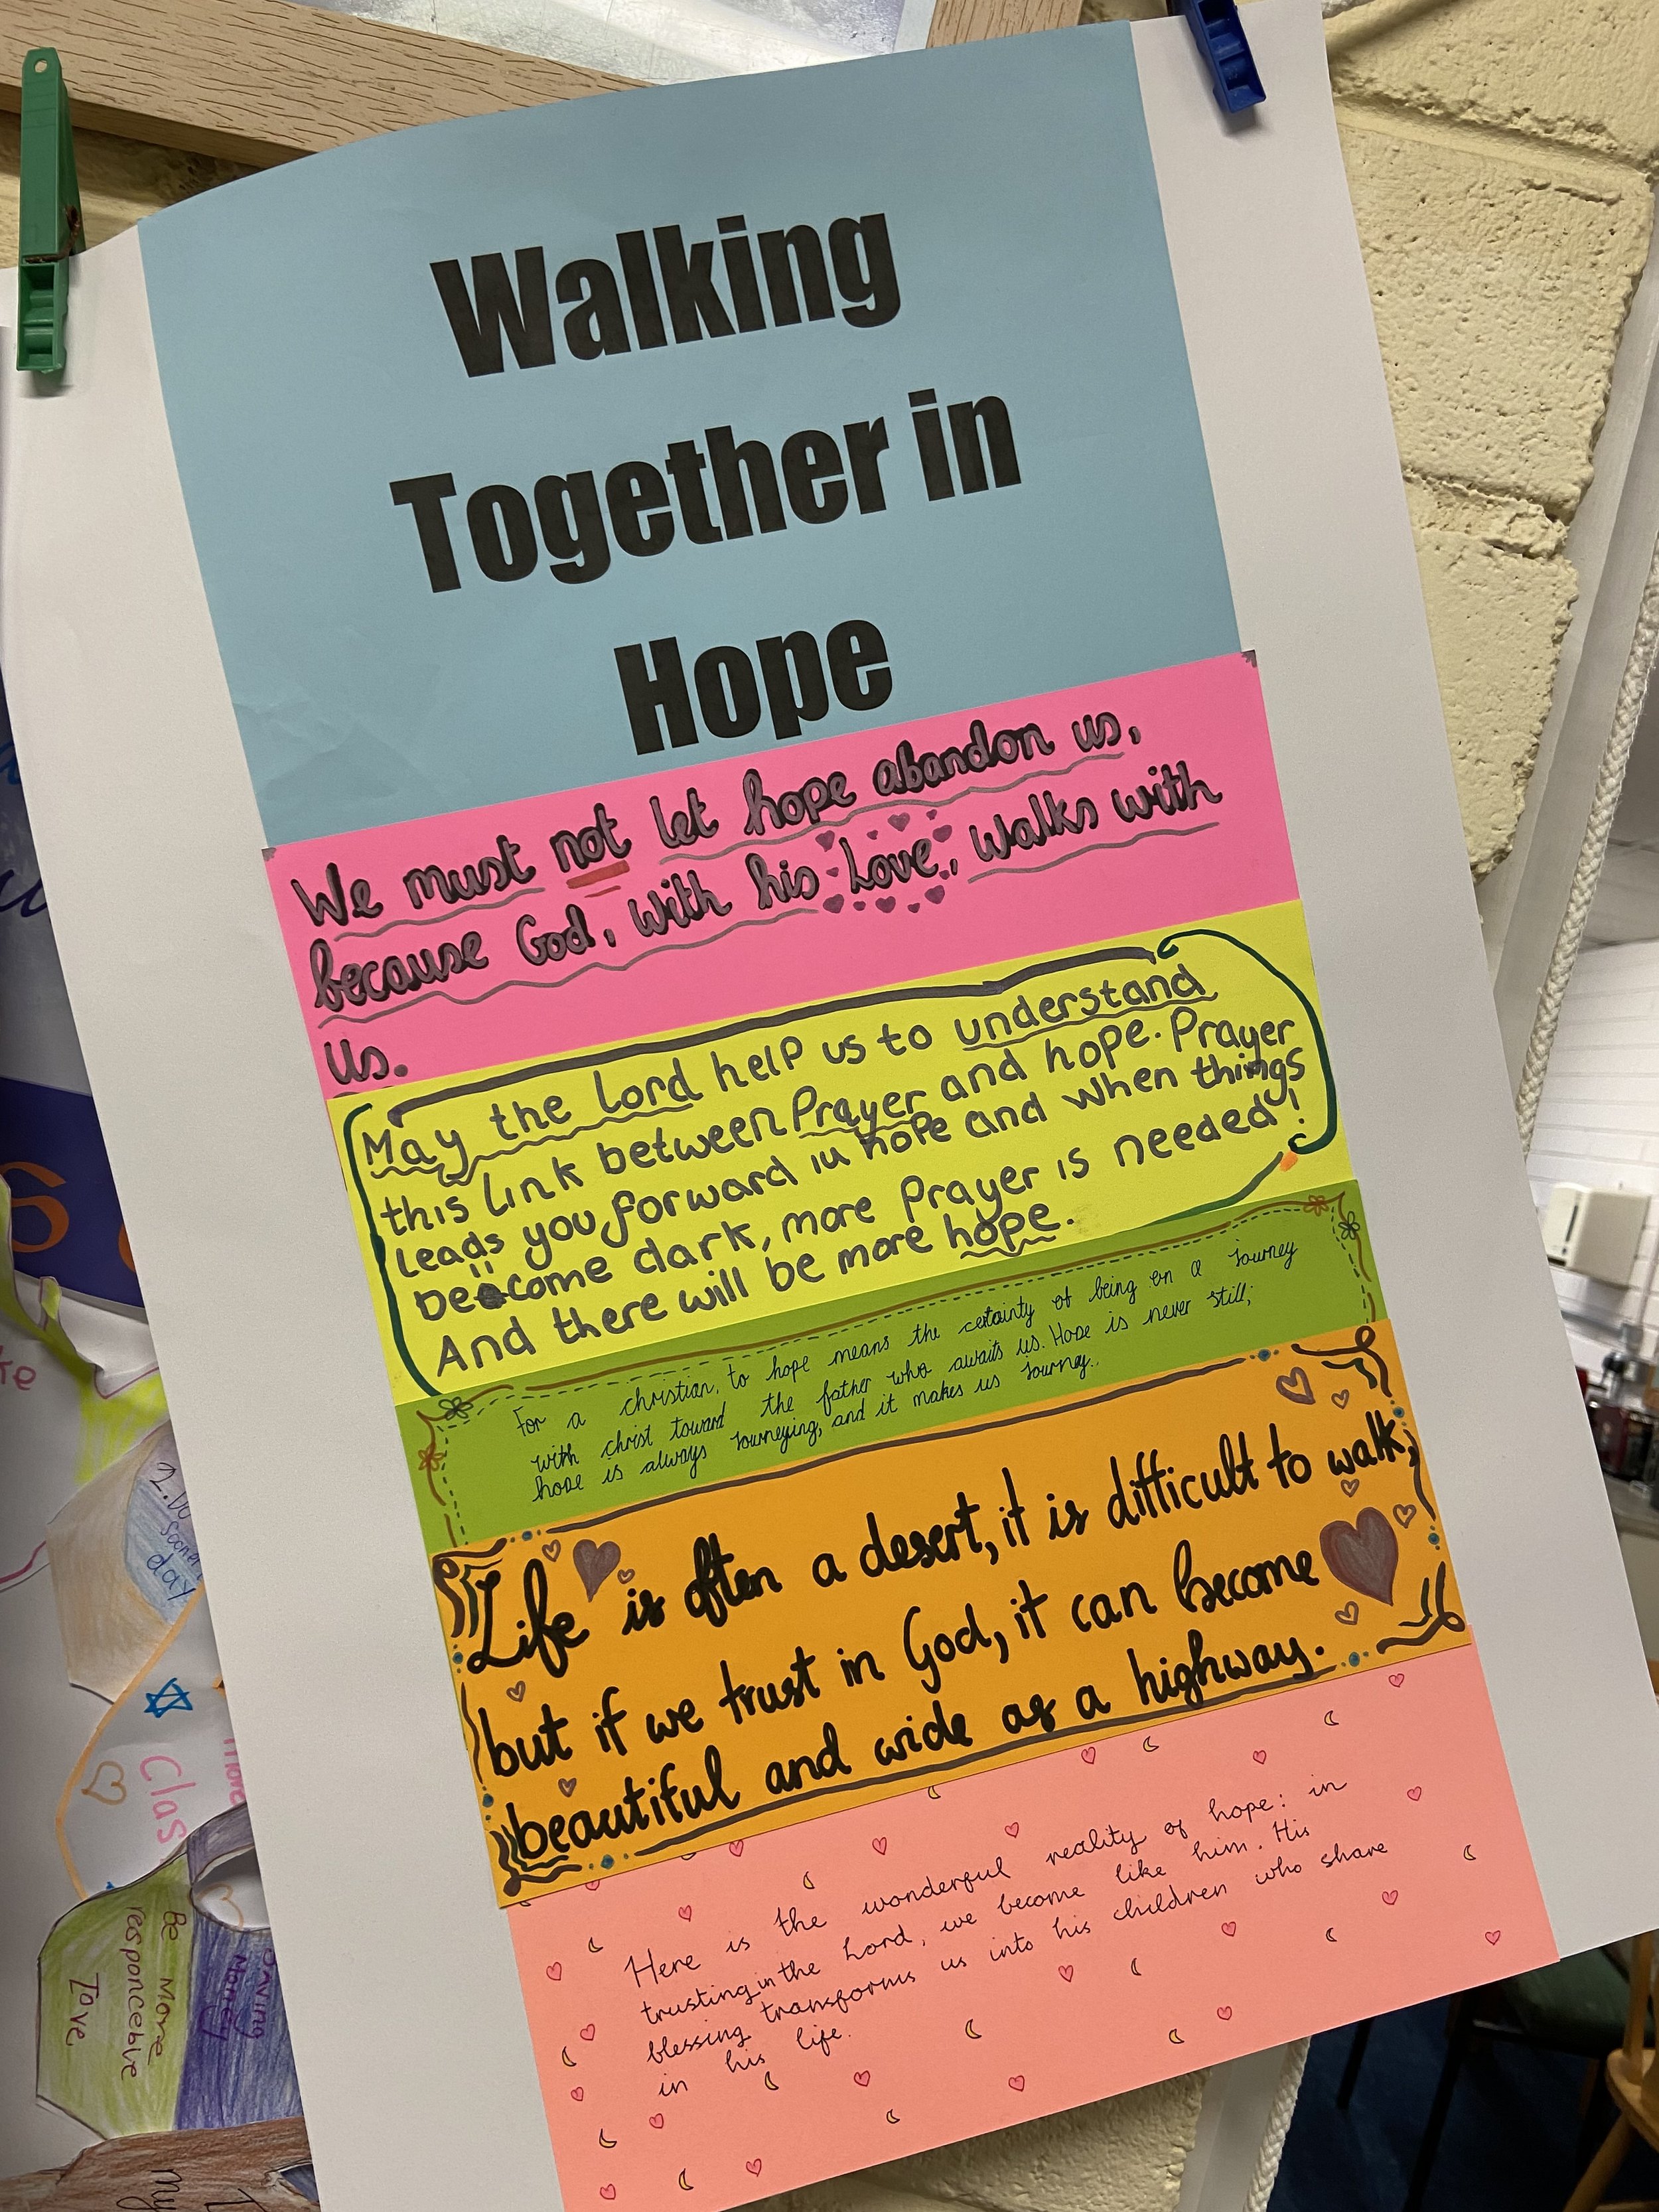 Walking
Together in
Hope
We must not let hope abandon us,
because God, with his Love, walks with
us.
May the Lord help us to understand
this link between Prayer and hope. Prayer
leads you forward in hope and when things
become dark, more Prayer is needed!
And there will be more hope.
For a christian, to hope means the certainty of being on a Journey
with christ toward the father who awaits us. Hope is never still;
hope is always Journeying, and it makes us Journey.
Life is often a desert, it is difficult to walk,
but if we trust in God, it can become
beautiful and wide as a highway.
Here is the wonderful reality of hope: in
trusting in the Lord, we become like him. His
blessing transforms us into his children who share
in his life.
2.00
sooner
day
Clas
more
Be More
responcebive
Tove
Saving
Money
my